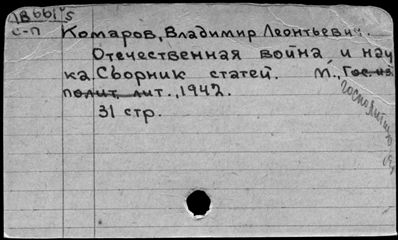 18661
С-П
Комаров, Владимир Леонтьевич.
Отечественная война и нау
ка. Сборник статей. М., Гос. из.
полит. лит., 1942.
31 стр.